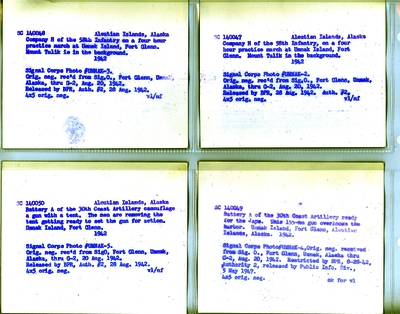 SC 140048 Aleutian Islands, Alaska
Company M of the 58th Infantry on a four hour
practice march at Umnak Island, Fort Glenn.
Mount Tulik is in the background.
1942
Signal Corps Photo #UMNAK-3.
Orig. neg. rec'd from Sig.O., Fort Glenn, Umnak,
Alaska, thru G-2, Aug. 20, 1942.
Released by BPR, Auth. #2, 28 Aug. 1942.
4x5 orig. neg. vl/mf
SC 140047 Aleutian Islands, Alaska
Company M of the 58th Infantry, on a four
hour practice march at Umnak Island, Fort
Glenn. Mount Tulik is in the background.
1942
Signal Corps Photo #UMNAK-2.
Orig. neg. rec'd from Sig.O, Fort Glenn, Umnak,
Alaska, thru G-2, Aug. 20, 1942.
Released by BPR, 28 Aug. 1942. Auth. #2,
4x5 orig. neg. vl/mf
SC 140050 Aleutian Islands, Alaska
Battery A of the 30th Coast Artillery camouflage
a gun with a tent. The men are removing the
tent getting ready to set the gun for action.
Umnak Island, Fort Glenn.
1942
Signal Corps Photo #UMNAK-5.
Orig. neg. rec'd from SigO, Fort Glenn, Umnak,
Alaska, thru G-2, 20 Aug. 1942.
Released by BPR, Auth. #2, 28 Aug. 1942.
4x5 orig. neg. vl/mf
SC 140049
Battery A of the 30th Coast Artillery ready
for the Japs. This 155-mm gun overlooks the
Harbor. Umnak Island, Fort Glenn, Aleutian
Islands, Alaska. 1942.
Signal Corps Photo#UMNAK-4,Orig. neg. received
from Sig. O., Fort Glenn, Umnak, Alaska thru
G-2, Aug. 20, 1942. Restricted by BPR, 8-28-42,
Authority 2, released by Public Info. Div.,
5 May 1947.
4x5 orig. neg. mk for vl